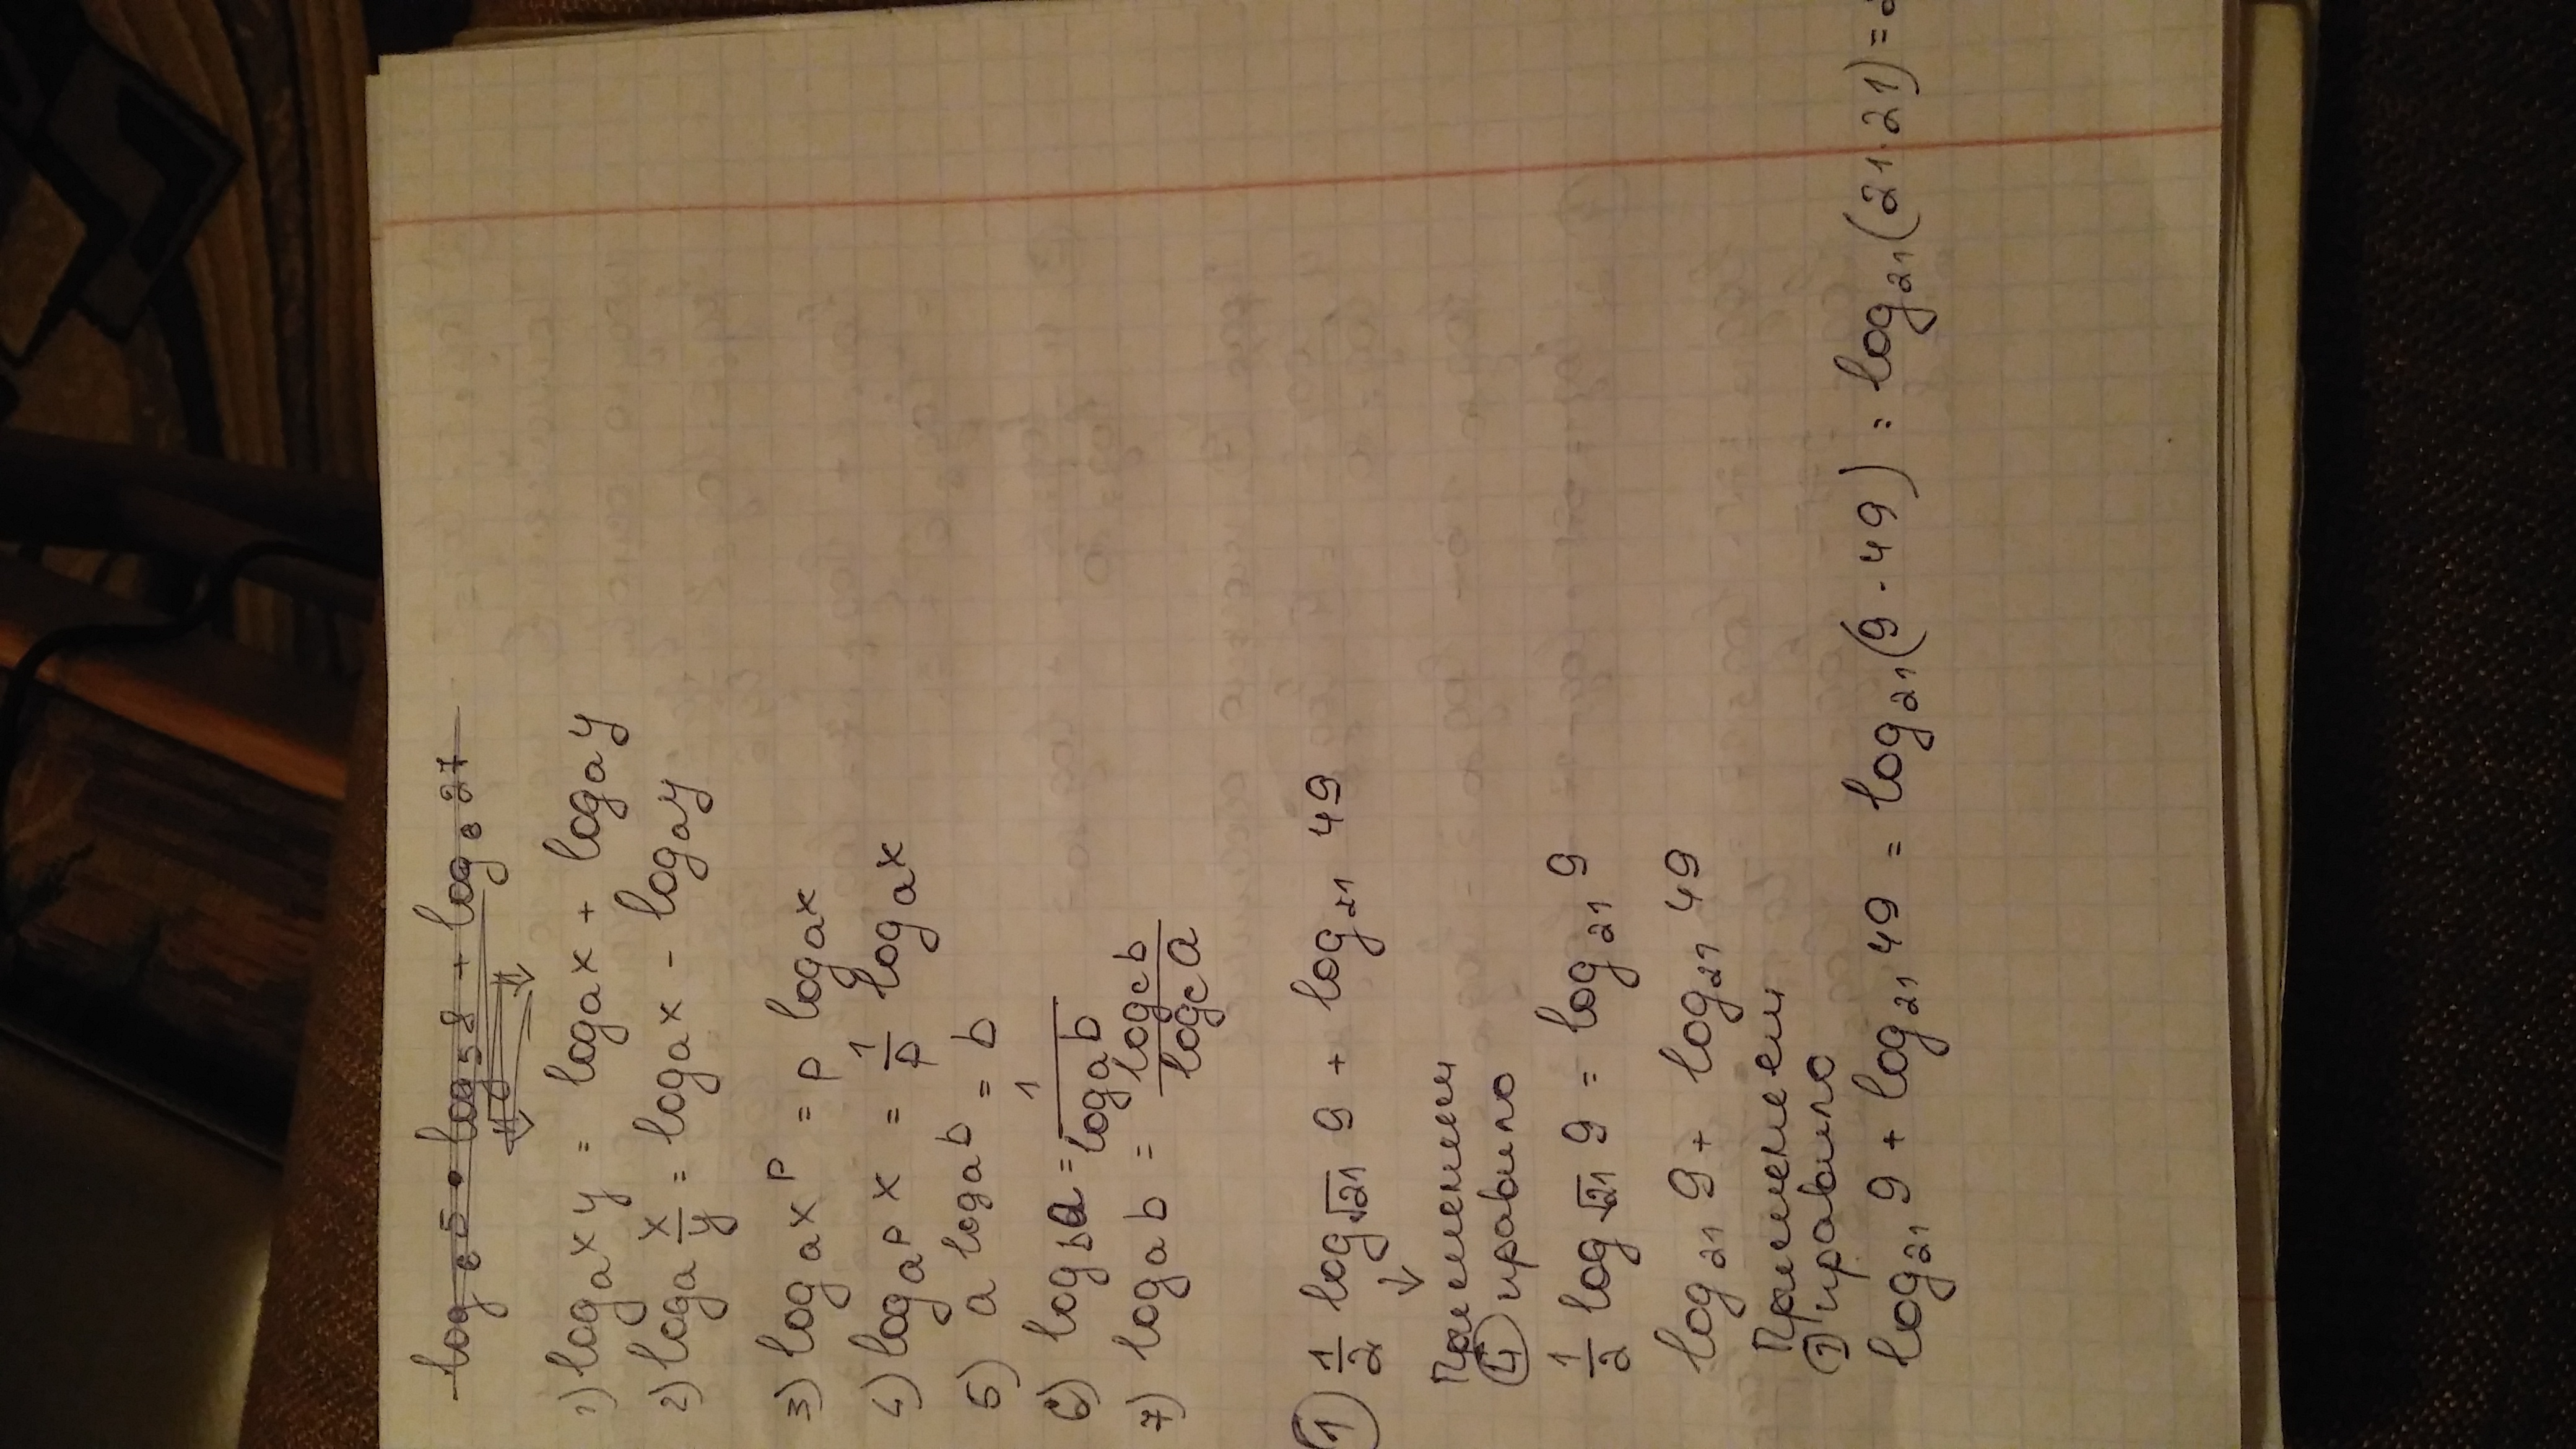 1) logₐ xy = logₐx + logₐy
2) logₐ x/y = logₐx - logₐy
3) logₐxᵖ = p logₐx
4) log_aᵖ x = 1/p logₐx
5) a^logₐb = b
6) log_b a = 1/logₐb
7) logₐb = log_c b/log_c a
① 1/2 log_√21 9 + log₂₁ 49
↓
Применим
④ правило
1/2 log_√21 9 = log₂₁ 9
log₂₁ 9 + log₂₁ 49
Применем
① правило
log₂₁ 9 + log₂₁ 49 = log₂₁(9 · 49) = log₂₁(21·21) =